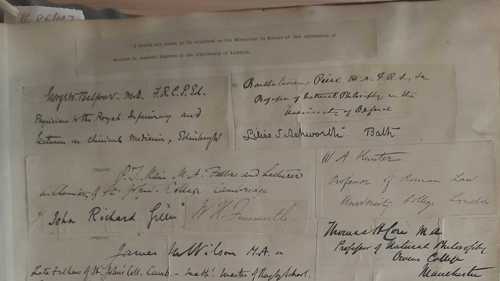 to be appended to the Memorial in favour of the admission of
Women to Academic Degrees in the University of London.
George W. Balfour. M.D. F.R.C.P.Ed.
Physician to the Royal Infirmary and
Lecturer on clinical Medicine, Edinburgh
Bartholomew Price M.A. F.R.S. &c
Professor of Natural Philosophy in the
University of Oxford
Lilias S Ashworth Bath
P.T. Main M.A. Fellow and Lecturer
in Chemistry of St. John's College Cambridge
John Richard Green
W A Hunter
Professor of Roman Law
University College London
James M. Wilson M.A.
Late Fellow of St. John's Coll. Camb. - Math. Master of Rugby School.
Thomas H. Core M.A.
Professor of Natural Philosophy
Owens College
Manchester